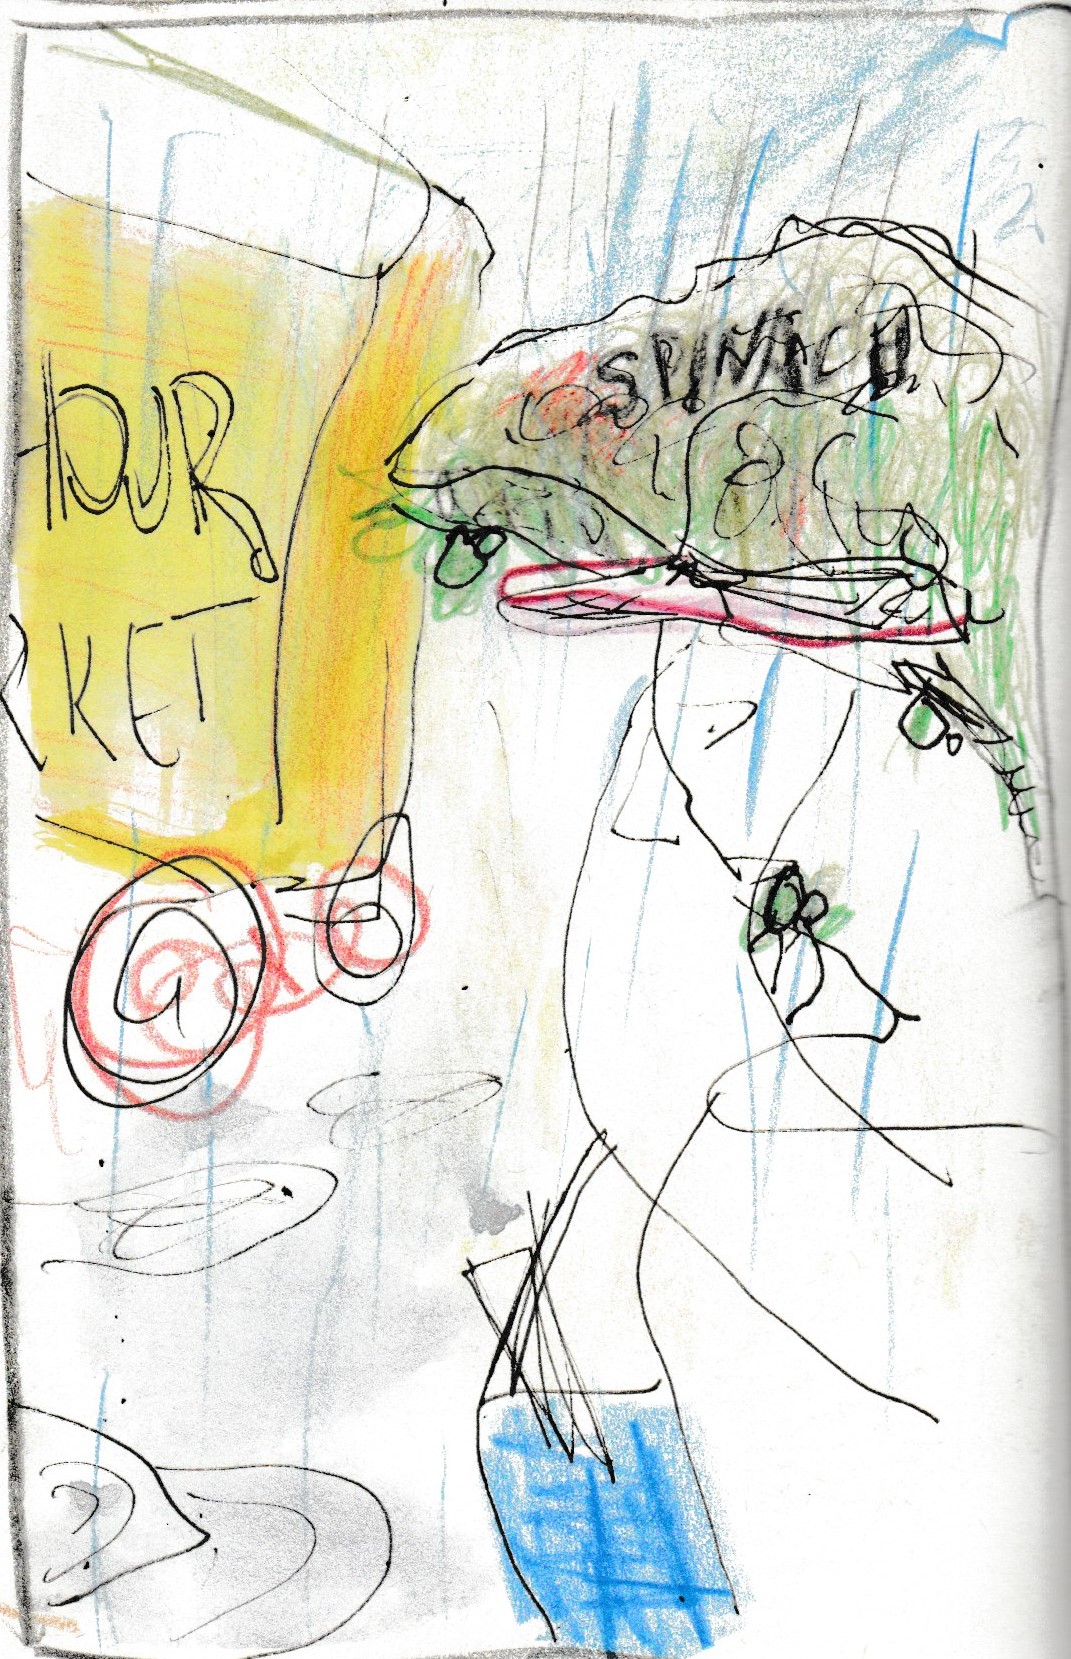 HOUR
RKET
SPINACH